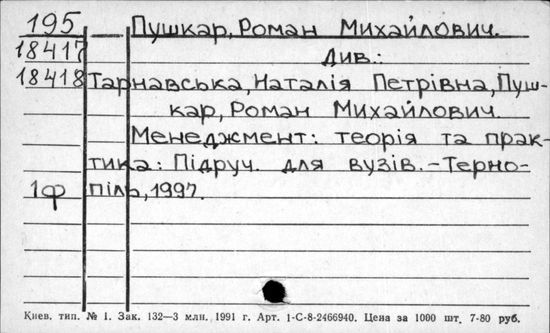 195 Пушкар, Роман Михайлович.
18417 Див.:
18418 Тарнавська, Наталія Петрівна, Пуш-
кар, Роман Михайлович.
Менеджмент: теорія та прак-
тика: Підруч. для вузів. – Терно-
1ф піль, 1997.
Киев. тип. № 1. Зак. 132—3 млн. 1991 г. Арт. 1-С-8-2466940. Цена за 1000 шт. 7-80 руб.